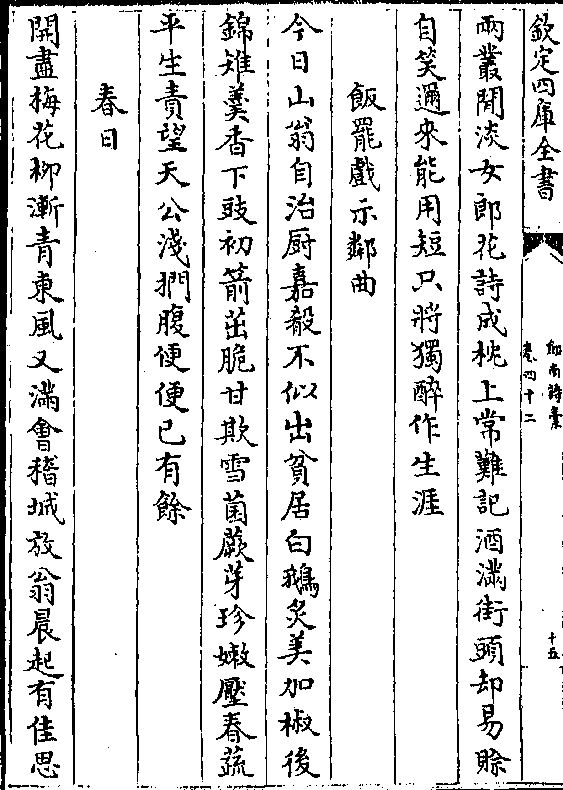 欽定四庫全書
劍南詩藁
卷四十二
十五
兩叢閒淡女郎花詩成枕上常難記酒滿街頭却易賒
自笑邇來能用短只將獨醉作生涯
飯罷戲示鄰曲
今日山翁自治厨嘉殽不似出貧居白鵝炙美加椒後
錦雉羹香下豉初箭茁脆甘欺雪菌蕨芽珍嫩壓春蔬
平生責望天公淺捫腹便便已有餘
春日
開盡梅花柳漸青東風又滿會稽城放翁晨起有佳思